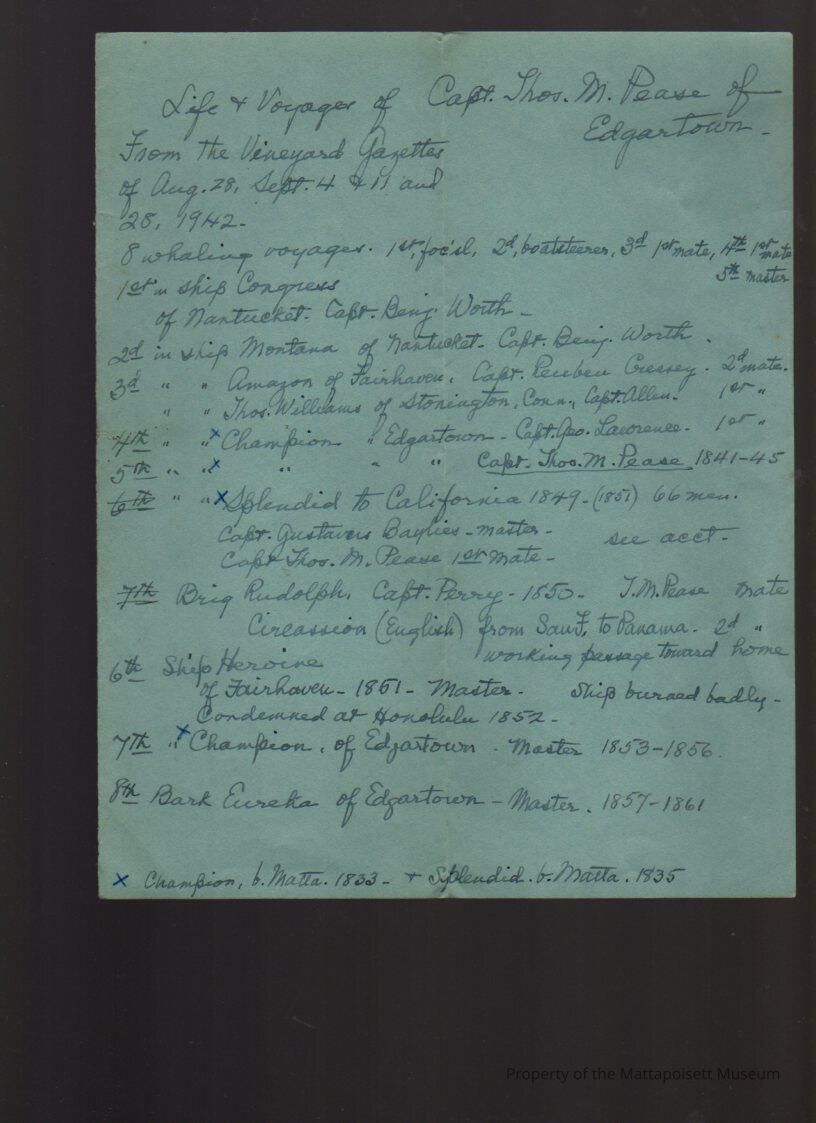 Life & Voyages of Capt. Thos. M. Pease of
Edgartown -
From the Vineyard Gazettes
of Aug. 28, Sept. 4 & 11 and
28, 1942-
8 whaling voyages. 1st, foc'sl, 2d, boatsteerer, 3d 1st mate, 4th 1st mate
5th master
1st in ship Congress
of Nantucket. Capt. Benj. Worth -
2d in ship Montana of Nantucket - Capt. Benj. Worth.
3d " " Amazon of Fairhaven. Capt. Reuben Cressey. 2d mate.
" " Thos. Williams of Stonington, Conn., Capt. Allen. 1st "
4th " " x Champion " Edgartown - Capt. Geo. Lawrence. 1st "
5th " " x " " " Capt. Thos. M. Pease 1841-45
6th " " x Splendid to California 1849-(1851) 66 men.
Capt. Gustavus Baylies - master - see acct -
Capt Thos. M. Pease 1st Mate -
7th Brig Rudolph, Capt. Perry - 1850 - T.M. Pease mate
Circassion (English) from San F. to Panama. 2d "
working passage toward home
6th Ship Heroine
of Fairhaven - 1851 - Master - ship burned badly -
Condemned at Honolulu 1852 -
7th " x Champion, of Edgartown - Master 1853-1856.
8th Bark Eureka of Edgartown - Master. 1857-1861
x Champion, b. Matta. 1833 - + Splendid. b. Matta. 1835
Property of the Mattapoisett Museum